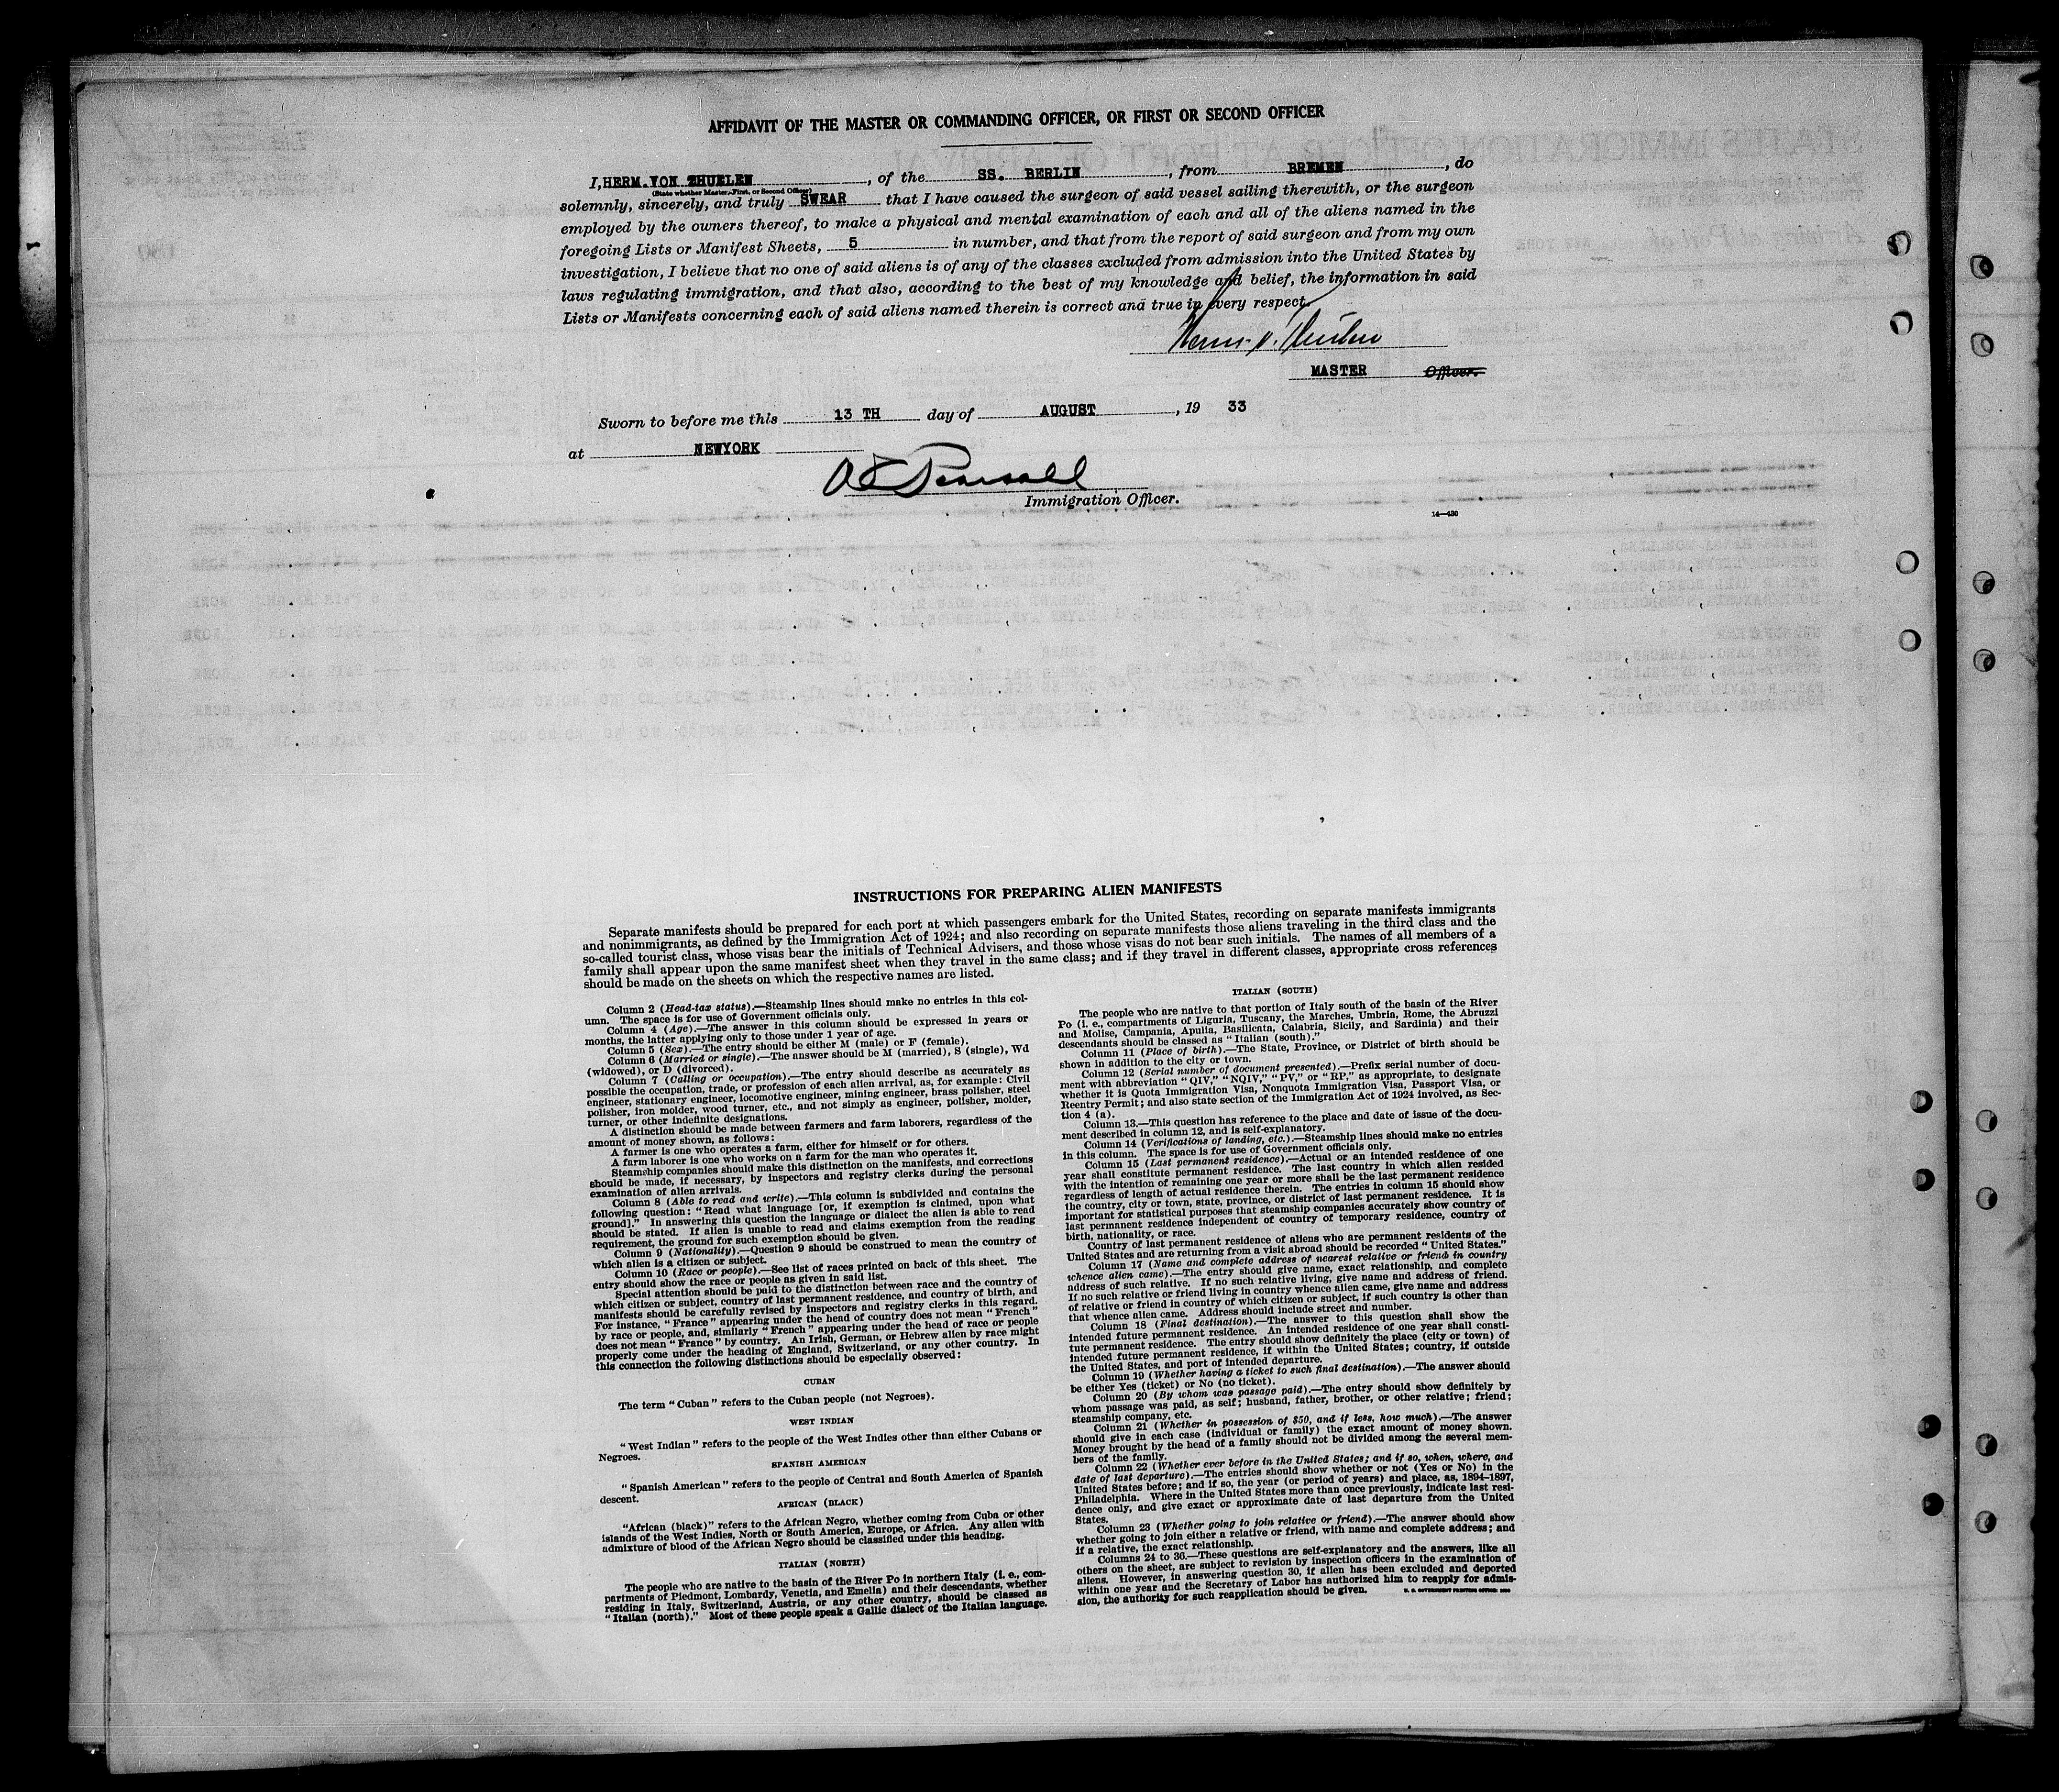 AFFIDAVIT OF THE MASTER OR COMMANDING OFFICER, OR FIRST OR SECOND OFFICER
I, HERM. VON THUELEN, of the SS. BERLIN, from BREMEN, do
(State whether Master, First, or Second Officer)
solemnly, sincerely, and truly SWEAR that I have caused the surgeon of said vessel sailing therewith, or the surgeon
employed by the owners thereof, to make a physical and mental examination of each and all of the aliens named in the
foregoing Lists or Manifest Sheets, 5 in number, and that from the report of said surgeon and from my own
investigation, I believe that no one of said aliens is of any of the classes excluded from admission into the United States by
laws regulating immigration, and that also, according to the best of my knowledge and belief, the information in said
Lists or Manifests concerning each of said aliens named therein is correct and true in every respect.
MASTER Officer.
Sworn to before me this 13 TH day of AUGUST, 19 33
at NEWYORK
Immigration Officer.
14—430
INSTRUCTIONS FOR PREPARING ALIEN MANIFESTS
Separate manifests should be prepared for each port at which passengers embark for the United States, recording on separate manifests immigrants
and nonimmigrants, as defined by the Immigration Act of 1924; and also recording on separate manifests those aliens traveling in the third class and the
so-called tourist class, whose visas bear the initials of Technical Advisers, and those whose visas do not bear such initials. The names of all members of a
family shall appear upon the same manifest sheet when they travel in the same class; and if they travel in different classes, appropriate cross references
should be made on the sheets on which the respective names are listed.
Column 2 (Head-tax status).—Steamship lines should make no entries in this col-
umn. The space is for use of Government officials only.
Column 4 (Age).—The answer in this column should be expressed in years or
months, the latter applying only to those under 1 year of age.
Column 5 (Sex).—The entry should be either M (male) or F (female).
Column 6 (Married or single).—The answer should be M (married), S (single), Wd
(widowed), or D (divorced).
Column 7 (Calling or occupation).—The entry should describe as accurately as
possible the occupation, trade, or profession of each alien arrival, as, for example: Civil
engineer, stationary engineer, locomotive engineer, mining engineer, brass polisher, steel
polisher, iron molder, wood turner, etc., and not simply as engineer, polisher, molder,
turner, or other indefinite designations.
A distinction should be made between farmers and farm laborers, regardless of the
amount of money shown, as follows:
A farmer is one who operates a farm, either for himself or for others.
A farm laborer is one who works on a farm for the man who operates it.
Steamship companies should make this distinction on the manifests, and corrections
should be made, if necessary, by inspectors and registry clerks during the personal
examination of alien arrivals.
Column 8 (Able to read and write).—This column is subdivided and contains the
following question: "Read what language [or, if exemption is claimed, upon what
ground]." In answering this question the language or dialect the alien is able to read
should be stated. If alien is unable to read and claims exemption from the reading
requirement, the ground for such exemption should be given.
Column 9 (Nationality).—Question 9 should be construed to mean the country of
which alien is a citizen or subject.
Column 10 (Race or people).—See list of races printed on back of this sheet. The
entry should show the race or people as given in said list.
Special attention should be paid to the distinction between race and the country of
which citizen or subject, country of last permanent residence, and country of birth, and
manifests should be carefully revised by inspectors and registry clerks in this regard.
For instance, "France" appearing under the head of country does not mean "French"
by race or people, and, similarly "French" appearing under the head of race or people
does not mean "France" by country. An Irish, German, or Hebrew alien by race might
properly come under the heading of England, Switzerland, or any other country. In
this connection the following distinctions should be especially observed:
CUBAN
The term "Cuban" refers to the Cuban people (not Negroes).
WEST INDIAN
"West Indian" refers to the people of the West Indies other than either Cubans or
Negroes.
SPANISH AMERICAN
"Spanish American" refers to the people of Central and South America of Spanish
descent.
AFRICAN (BLACK)
"African (black)" refers to the African Negro, whether coming from Cuba or other
islands of the West Indies, North or South America, Europe, or Africa. Any alien with
admixture of blood of the African Negro should be classified under this heading.
ITALIAN (NORTH)
The people who are native to the basin of the River Po in northern Italy (i. e., com-
partments of Piedmont, Lombardy, Venetia, and Emelia) and their descendants, whether
residing in Italy, Switzerland, Austria, or any other country, should be classed as
"Italian (north)." Most of these people speak a Gallic dialect of the Italian language.
ITALIAN (SOUTH)
The people who are native to that portion of Italy south of the basin of the River
Po (i. e., compartments of Liguria, Tuscany, the Marches, Umbria, Rome, the Abruzzi
and Molise, Campania, Apulia, Basilicata, Calabria, Sicily, and Sardinia) and their
descendants should be classed as "Italian (south)."
Column 11 (Place of birth).—The State, Province, or District of birth should be
shown in addition to the city or town.
Column 12 (Serial number of document presented).—Prefix serial number of docu-
ment with abbreviation "QIV," "NQIV," "PV," or "RP," as appropriate, to designate
whether it is Quota Immigration Visa, Nonquota Immigration Visa, Passport Visa, or
Reentry Permit; and also state section of the Immigration Act of 1924 involved, as Sec-
tion 4 (a).
Column 13.—This question has reference to the place and date of issue of the docu-
ment described in column 12, and is self-explanatory.
Column 14 (Verifications of landing, etc.).—Steamship lines should make no entries
in this column. The space is for use of Government officials only.
Column 15 (Last permanent residence).—Actual or an intended residence of one
year shall constitute permanent residence. The last country in which alien resided
with the intention of remaining one year or more shall be the last permanent residence
regardless of length of actual residence therein. The entries in column 15 should show
the country, city or town, state, province, or district of last permanent residence. It is
important for statistical purposes that steamship companies accurately show country of
last permanent residence independent of country of temporary residence, country of
birth, nationality, or race.
Country of last permanent residence of aliens who are permanent residents of the
United States and are returning from a visit abroad should be recorded "United States."
Column 17 (Name and complete address of nearest relative or friend in country
whence alien came).—The entry should give name, exact relationship, and complete
address of such relative. If no such relative living, give name and address of friend.
If no such relative or friend living in country whence alien came, give name and address
of relative or friend in country of which citizen or subject, if such country is other than
that whence alien came. Address should include street and number.
Column 18 (Final destination).—The answer to this question shall show the
intended future permanent residence. An intended residence of one year shall consti-
tute permanent residence. The entry should show definitely the place (city or town) of
intended future permanent residence, if within the United States; country, if outside
the United States, and port of intended departure.
Column 19 (Whether having a ticket to such final destination).—The answer should
be either Yes (ticket) or No (no ticket).
Column 20 (By whom was passage paid).—The entry should show definitely by
whom passage was paid, as self; husband, father, brother, or other relative; friend;
steamship company, etc.
Column 21 (Whether in possession of $50, and if less, how much).—The answer
should give in each case (individual or family) the exact amount of money shown.
Money brought by the head of a family should not be divided among the several mem-
bers of the family.
Column 22 (Whether ever before in the United States; and if so, when, where, and
date of last departure).—The entries should show whether or not (Yes or No) in the
United States before; and if so, the year (or period of years) and place, as, 1894–1897,
Philadelphia. Where in the United States more than once previously, indicate last resi-
dence only, and give exact or approximate date of last departure from the United
States.
Column 23 (Whether going to join relative or friend).—The answer should show
whether going to join either a relative or friend, with name and complete address; and
if a relative, the exact relationship.
Columns 24 to 36.—These questions are self-explanatory and the answers, like all
others on the sheet, are subject to revision by inspection officers in the examination of
aliens. However, in answering question 30, if alien has been excluded and deported
within one year and the Secretary of Labor has authorized him to reapply for admis-
sion, the authority for such reapplication should be given.